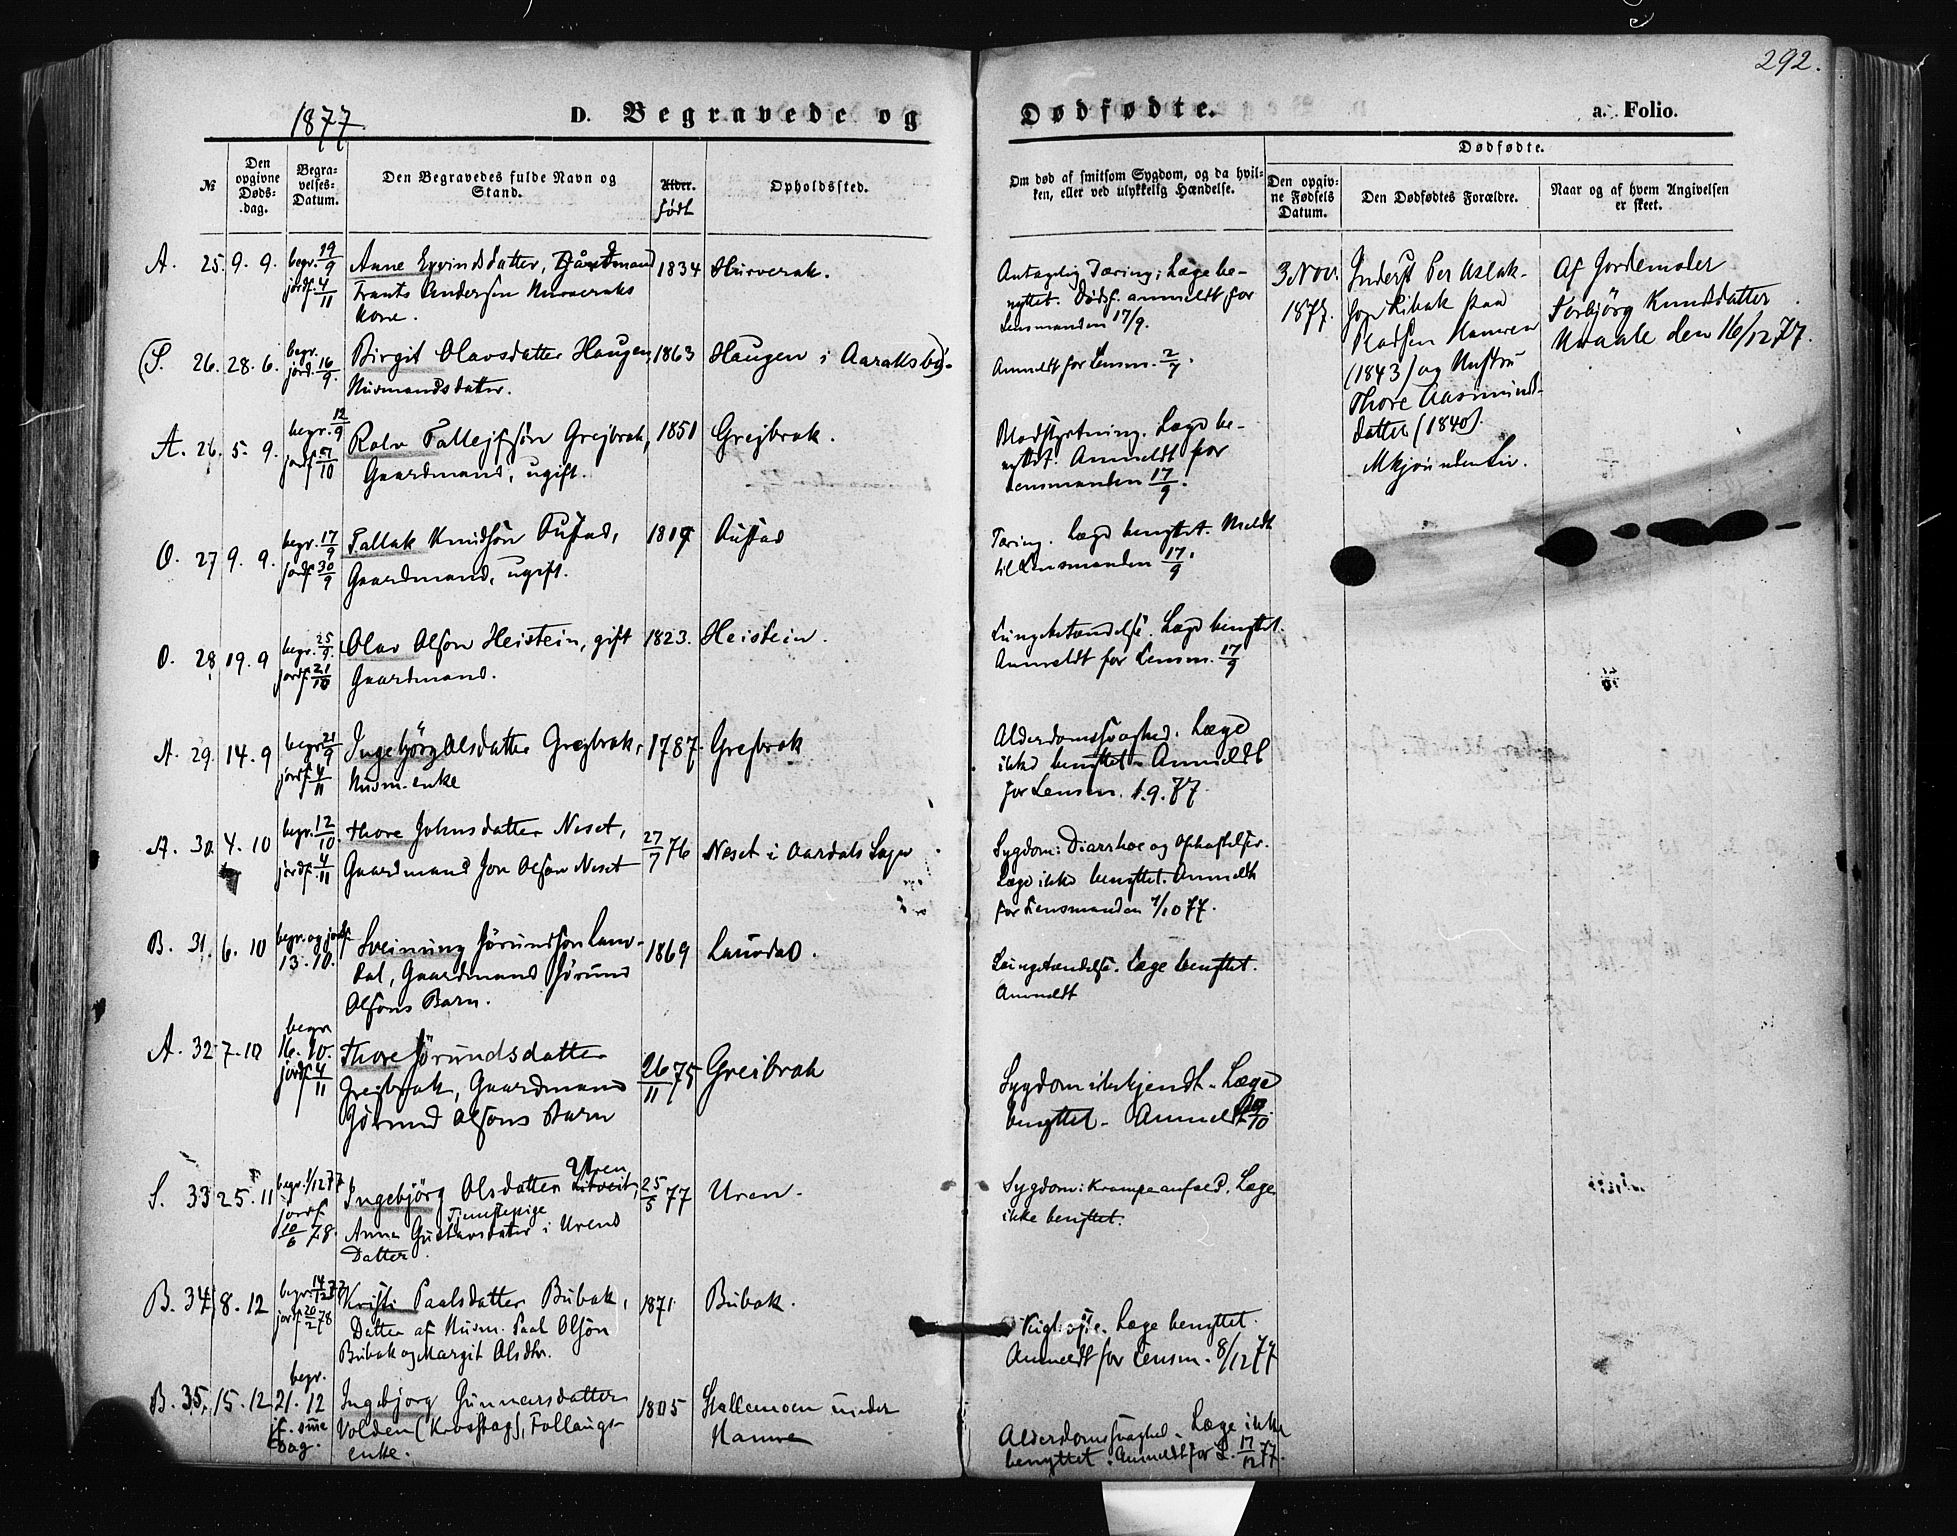 292.
1877.
D. Begravede og Dødfødte.
a. Folio.
№
Den opgivne Døds-dag.
Begra-velses-Datum.
Den Begravedes fulde Navn og Stand.
Alder.
født
Opholdssted.
Om død af smitsom Sygdom, og da hvil-
ken, eller ved ulykkelig Hændelse.
Dødfødte.
Den opgiv-
ne Fødsels
Datum.
Den Dødfødtes Forældre.
Naar og af hvem Angivelsen
er skeet.
A. 25. 9. 9. begr. 19/9 jordf. 4/11
Anne Eyvindsdatter, Gaardmand
Frants Andersen
Kone.
1834
Antagelig Tæring; Læge be-
nyttet. Dødsf. anmeldt for
Lensmanden 17/9.
3 Nov.
1877.
Inderst Per Aslak-
Pladsen
(1843) og Hustru
Thore Aasmunds-
datter (1840).
Af Jordemoder
Torbjörg Knudsdatter
den 16/12 77.
(S. 26. 28. 6. begr. jord. 16/9.
Birgit Olavsdatter Haugen,
Husmandsdatter.
1863
Haugen i Aaraksbø).
Anmeldt for Lensm. 2/7.
A. 26. 5. 9. begr. 12/9 jordf. 7/10
Rolv Tallejfsön Grejbrok,
Gaardmand, ugift.
1851
Grejbrok.
Blodstyrtning. Læge be-
nyttet. Anmeldt for
Lensmanden 17/9.
O. 27 9. 9. begr. 17/9 jordf. 30/9
Tallak Knudsön Rustad,
Gaardmand, ugift.
Rustad
Tæring. Læge benyttet. Meldt
til Lensmanden 17/9.
O. 28 19. 9 begr. 25/9 jordf. 21/10
Olav Olsön Heistein, gift
Gaardmand.
1823.
Heistein.
Lungebetændelse. Læge benyttet.
Anmeldt for Lensm. 17/9
A. 29. 14. 9 begr. 21/9 jordf. 4/11
Ingebjörg Olsdatter Grejbrok,
Husm. enke
1787.
Grejbrok
Alderdomssvaghed. Læge
ikke benyttet. Anmeldt
for Lensm. 1.9.77.
A. 30. 4. 10 begr. 12/10. jordf. 4/11
Thore Johnsdatter Neset,
Gaardmand Jon Olsøn Neset
27/7 76
Neset i Aardals Sogn
Sygdom: Diarrhoe og Ophostelser.
Læge ikke benyttet. Anmeldt
for Lensmanden 7/10 77.
B. 31. 6. 10 begr. og jordf 13. 10.
Sveinung Jörundsön Lauv-
dal, Gaardmand Jörund
Olsöns Barn.
1869
Lauvdal.
Læge benyttet.
Anmeldt
A. 32 7. 10 begr 16. 10. jordf. 4/11
Thore Jörundsdatter
Greibrok, Gaardmand
Jörund Olsöns Barn
26/11 75
Greibrok
Sygdom ikke kjendt. Læge
benyttet. Anmeldt
S. 33 25. 11 begr. 1/12 77 jordf. 10/6 78.
Ingebjörg Olsdatter Uren
Tjenestepige
Anna Gustavsdatter i Urens
Datter
25/5 77
Uren.
Sygdom: Krampeanfald. Læge
ikke benyttet.
B. 34 8. 12 begr. 14/12 77 jordf. 20/2 78
Kristi Paalsdatter Bubak,
Datter af Husm. Paal Olsön
Bubak og Margit Olsdtr.
1871.
Bubak.
Kighoste. Læge benyttet.
Anmeldt for Lensm. 8/12 77
B. 35. 15. 12 begr. 21. 12 jf. sme Dag.
Ingebjorg Gunnarsdatter
Volden
enke.
1805
Stallemoen under
Alderdomssvaghed. Læge ikke
benyttet. Anmeldt for L. 17/12 77.